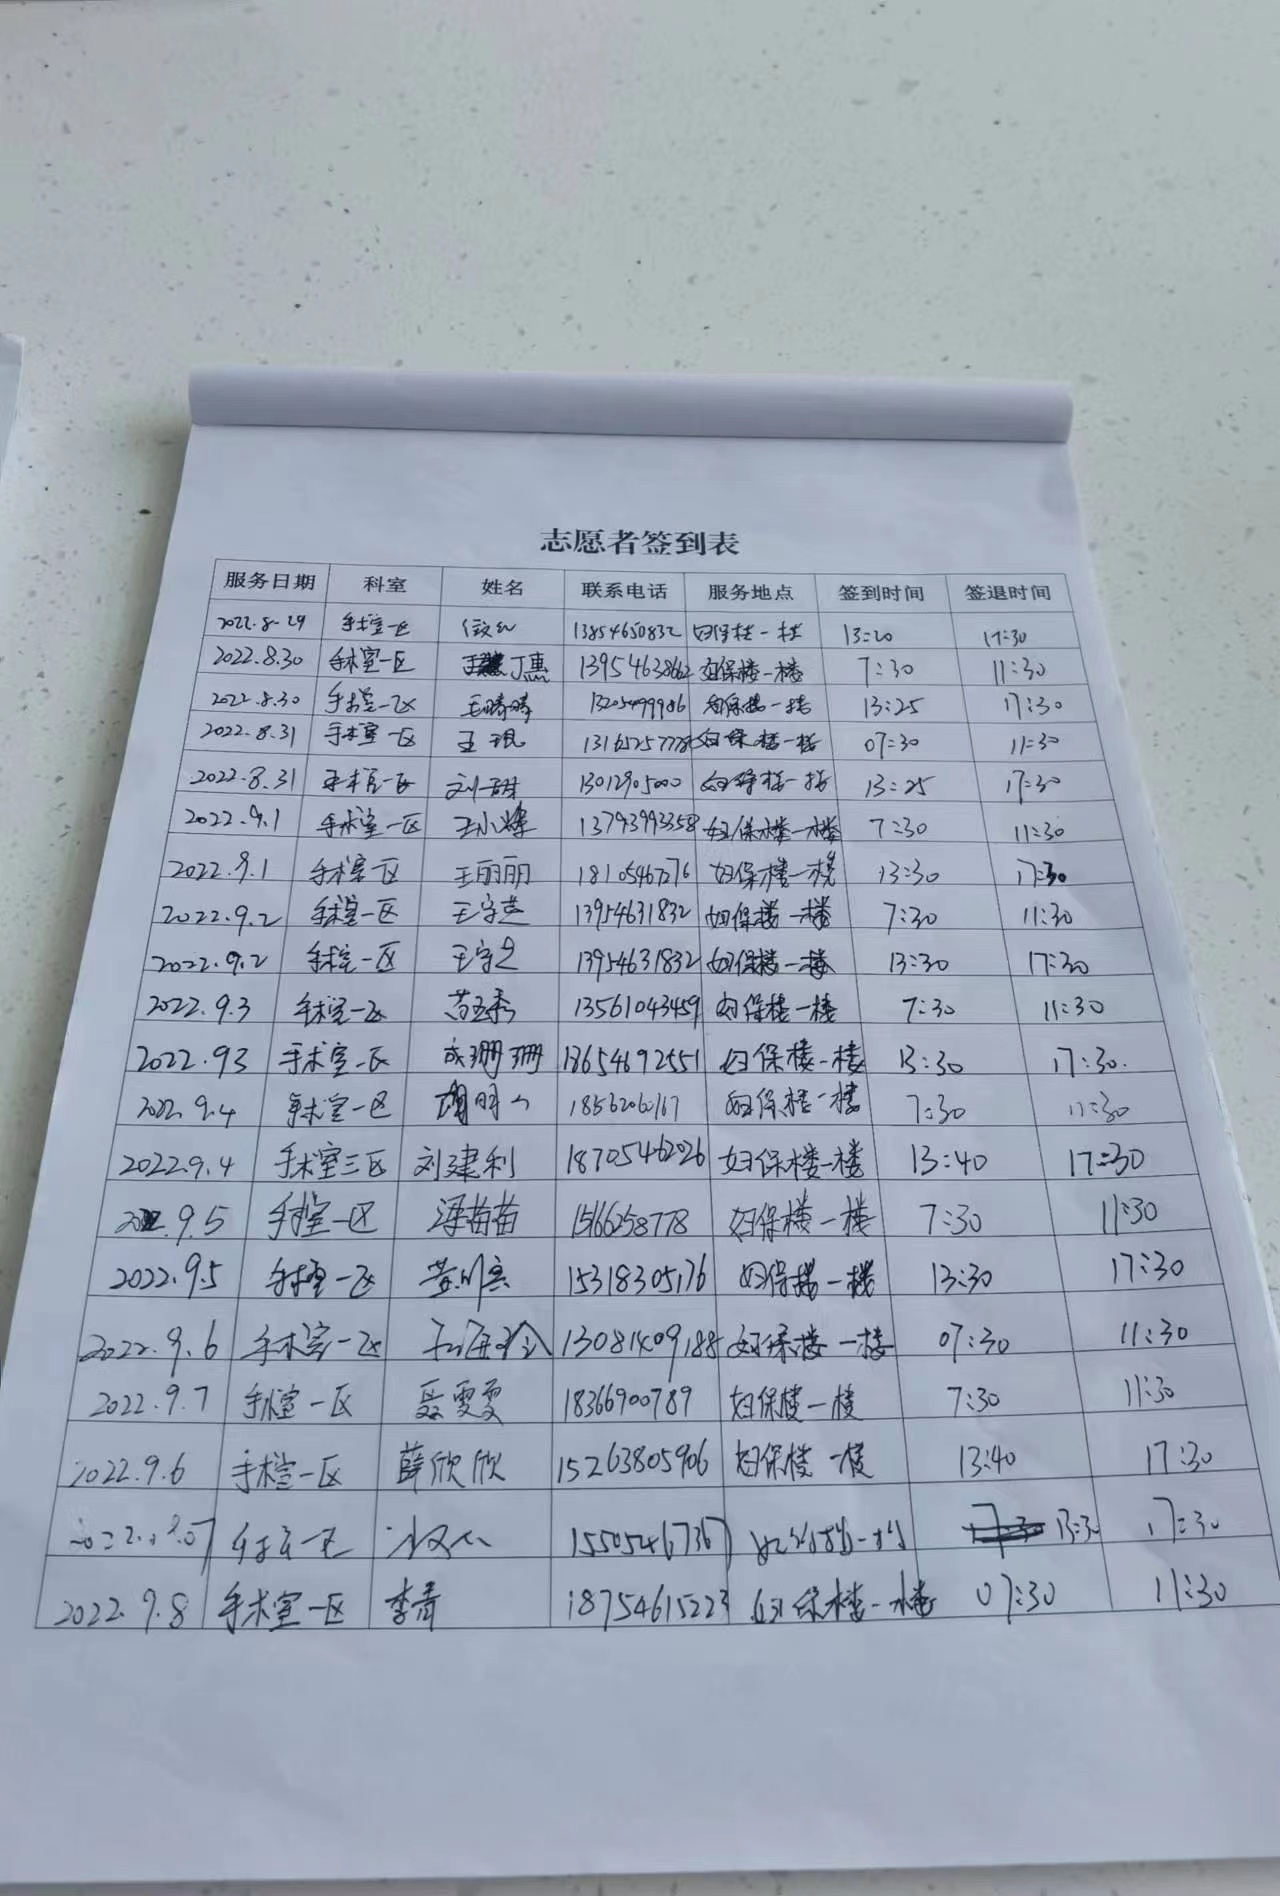 志愿者签到表
服务日期 科室 姓名 联系电话 服务地点 签到时间 签退时间
2022.8.29 手术室一区 13854650832 妇保楼一楼 13:20 17:30
2022.8.30 手术室一区 丁惠 13954638662 妇保楼一楼 7:30 11:30
2022.8.30 手术室一区 王晴晴 13205499986 妇保楼一楼 13:25 17:30
2022.8.31 手术室一区 王琨 13165257778 妇保楼一楼 07:30 11:30
2022.8.31 手术室一区 刘 13012905000 妇保楼一楼 13:25 17:30
2022.9.1 手术室一区 王小 13793993358 妇保楼一楼 7:30 11:30
2022.9.1 手术室一区 王丽丽 18105467276 妇保楼一楼 13:30 17:30
2022.9.2 手术室一区 13954631832 妇保楼一楼 7:30 11:30
2022.9.2 手术室一区 13954631832 妇保楼一楼 13:30 17:30
2022.9.3 手术室一区 13561043459 妇保楼一楼 7:30 11:30
2022.93 手术室一区 成珊珊 18654692551 妇保楼一楼 13:30 17:30.
2022.9.4 手术室一区 妇保楼一楼 7:30 11:30
2022.9.4 手术室三区 刘建利 18705462026 妇保楼一楼 13:40 17:30
2022.9.5 手术室一区 梁苗苗 15166258778 妇保楼一楼 7:30 11:30
2022.9.5 手术室一区 15318305176 妇保楼一楼 13:30 17:30
2022.9.6 手术室一区 13081409188 妇保楼一楼 07:30 11:30
2022.9.7 手术室一区 聂雯雯 18366900789 妇保楼一楼 7:30 11:30
2022.9.6 手术室一区 薛欣欣 15263805906 妇保楼一楼 13:40 17:30
15505467367 13:30 17:30
2022.9.8 手术室一区 李青 18754615223 妇保楼一楼 07:30 11:30